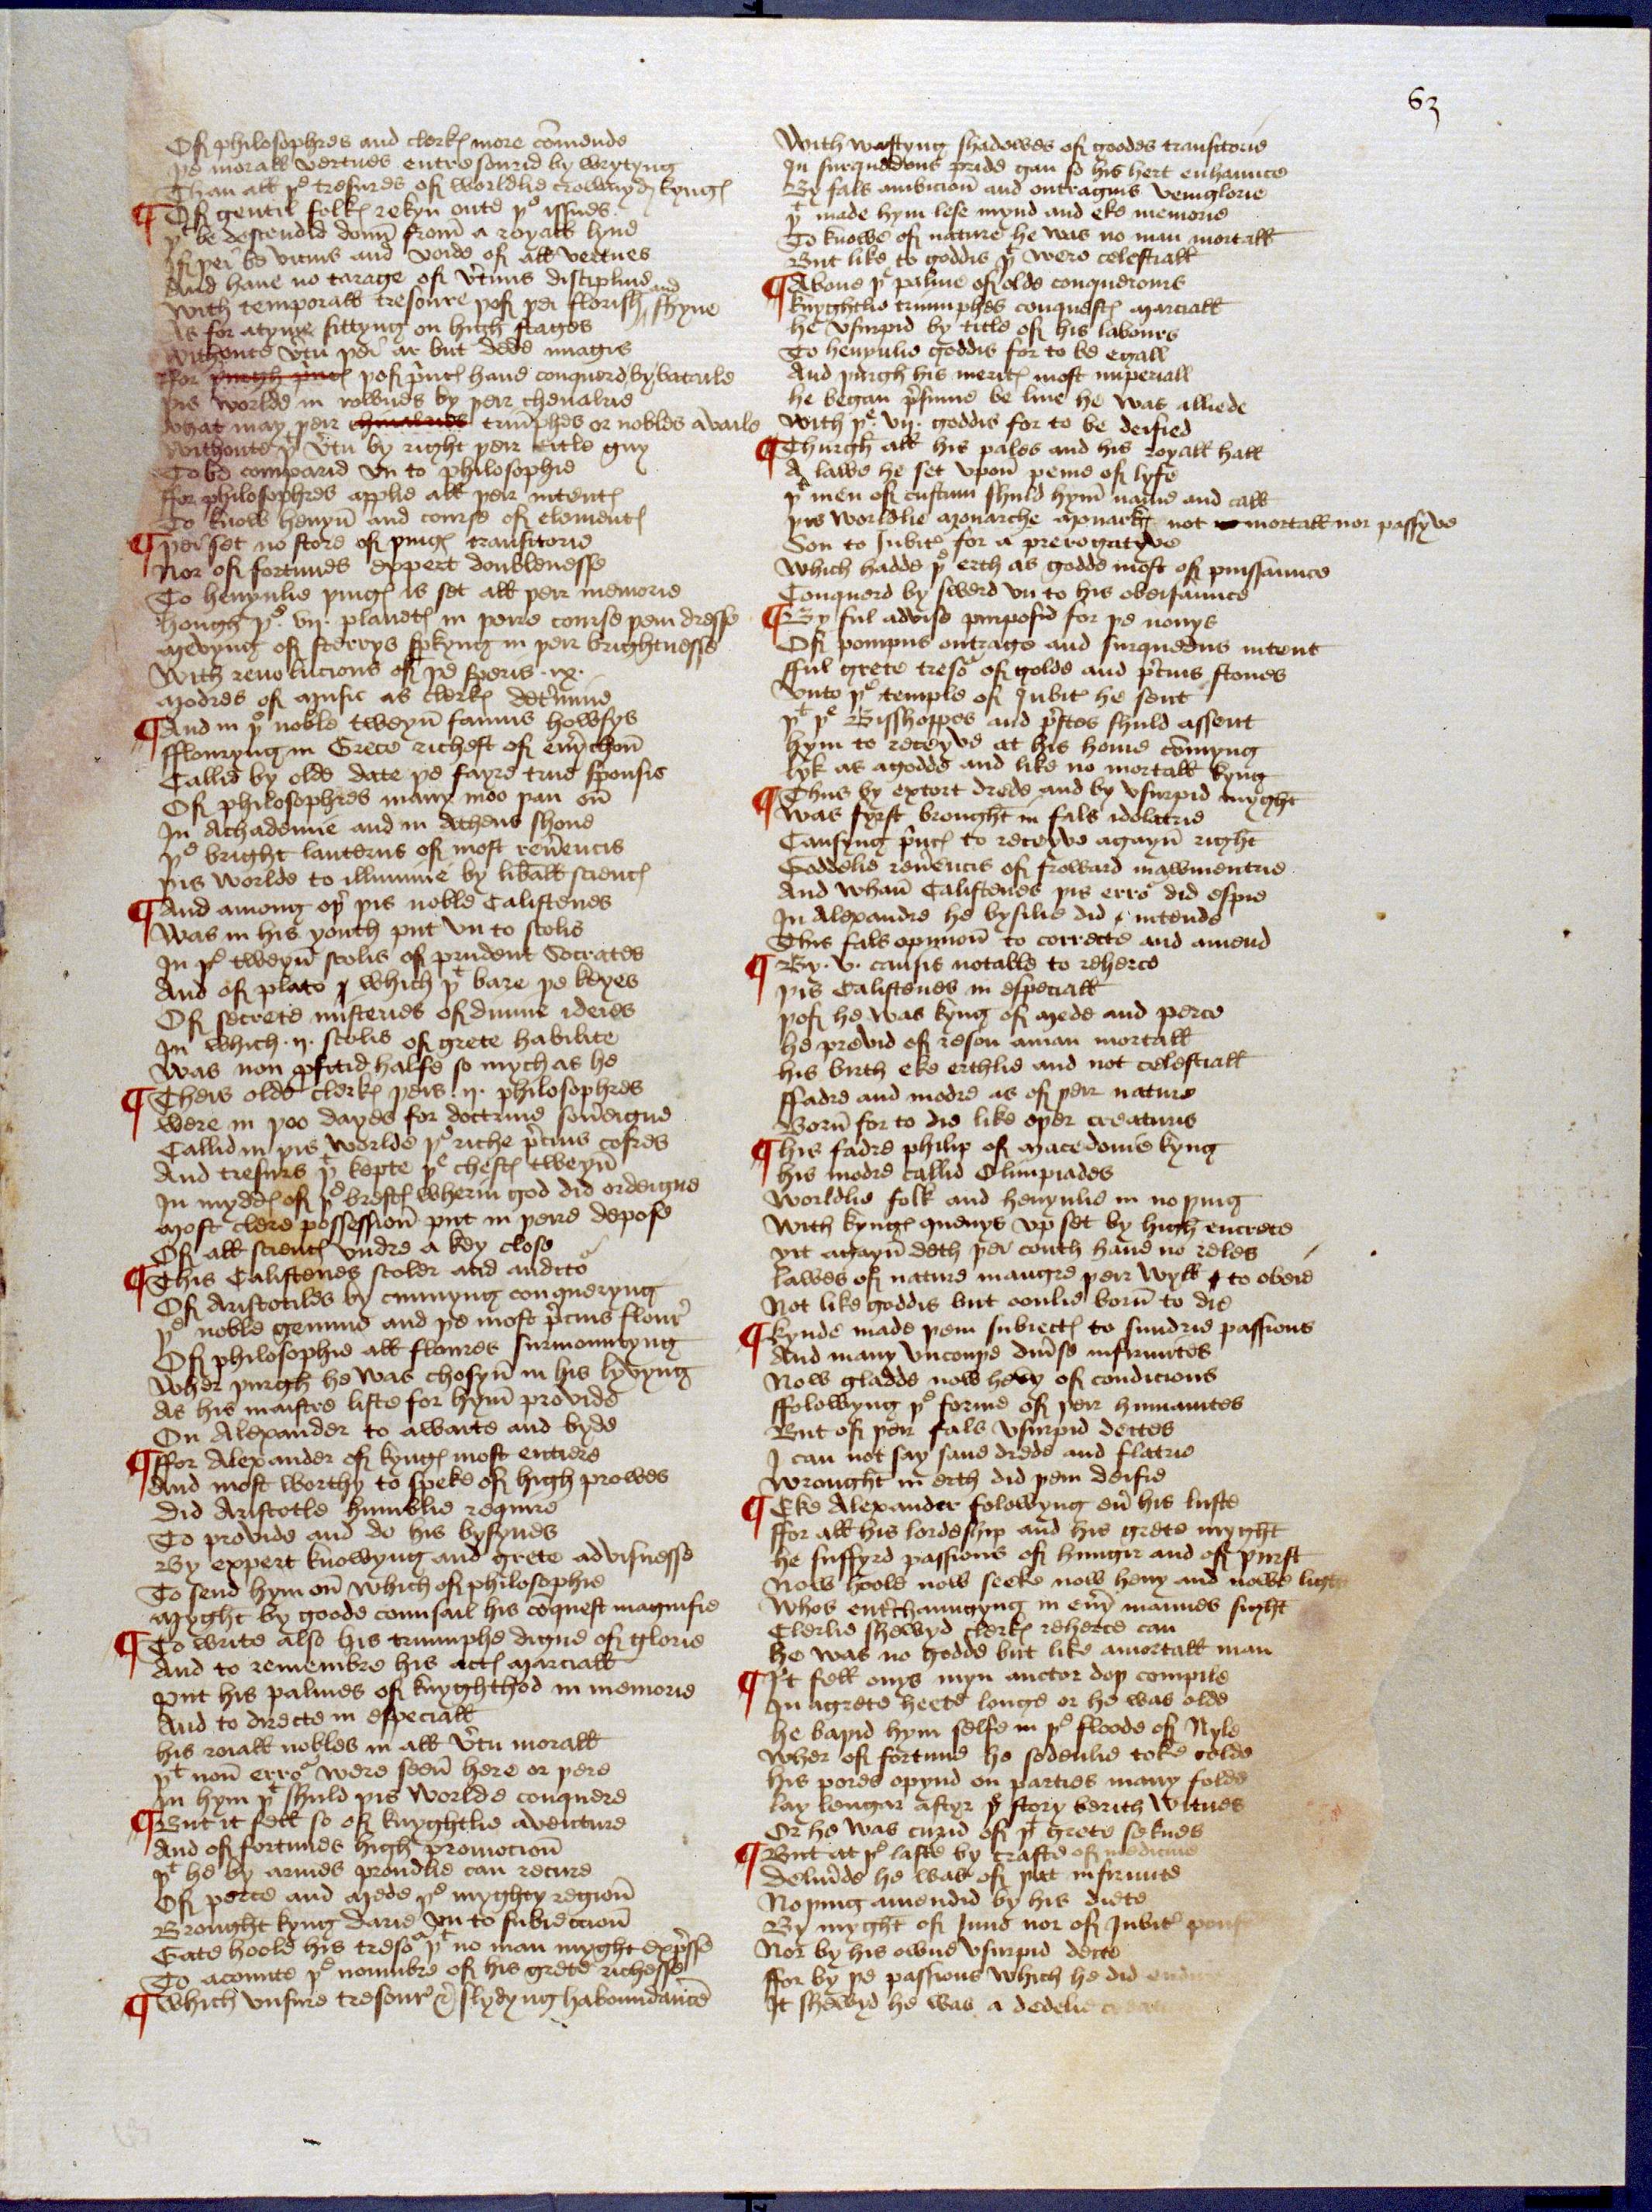 63
Of philosophres and clerkꝭ more cōmende
þe morall vertues entresourid by wrytyng
Than all þᵉ tresures of worldlie crownyd kyngꝭ
¶ Of gentil folkꝭ rekyn oute þᵉ issues
þᵗ be descendid doun from a royall lyne
If þei be vicius and voide of all vertues
And haue no tarage of v̾tuus discipline
With temporall tresoure þof þei florish and shyne
As for atyme sittyng on high stages
Withoute v̾tu þei ar but dede ymages
ffor þurgh princꝭ þof princꝭ haue conquerd by bataile
þis worlde in rowndes by þeir cheualrie
What may þeir chiualries triūphes or nobles availe
Withoute þᵗ v̾tu by right þeir title guy
To be comparid vn to philosophie
ffor philosophres applie all þeir intentꝭ
To know heuyn and course of elementꝭ
¶ þei set no store of þingꝭ transitorie
Nor of fortunes expert doublenesse
To heuynlie þingꝭ is set all þeir memorie
hough þᵉ .vij. planetꝭ in þeire course þem dresse
Mevyng of sterrys spkyng in þeir brightnesse
With reuolucions of þe speris .ix.
Modres of musik as clerkꝭ det̾mine
¶ And in þᵉ noble tweyn famus howsys
fflouryng in Grece richest of eūychon
Callid by olde date þe fayre true spousis
Of philosophres many moo þan on
In Achademie and in Athenes shone
þᵉ bright lanterns of most reuerencis
þis worlde to illumine by liberall sciencꝭ
¶ And among oþer þis noble Calistenes
Was in his youth put vn to scolis
In þᵉ tweyn scolis of prudent Socrates
And of plato which þᵗ bare þe keyes
Of secrete misteries of diuine ideies
In which .ij. scolis of grete habilite
Was non ꝓfitid halfe so mych as he
¶ Theis olde clerkꝭ þeis .ij. philosophres
Were in þoo dayes for doctrine souereigne
Callid in þis worlde þᵉ riche p̾cius cofres
And tresurs þᵗ kepte þᵉ chestꝭ tweyn
In myddꝭ of þᵉ brestꝭ wherin god did ordeigne
Most clere possession put in þeire depose
Of all sciencꝭ vndre a key close
¶ This Calistenes scoler and auditoʳ
Of Aristotiles by cunnyng conqueryng
þᵉ noble gemme and þe most p̾cius flour
Of philosophie all floures surmountyng
Wher þurgh he was chosyn in his lyvyng
As his maistre liste for hym provide
On Alexander to awaite and byde
¶ ffor Alexander of kyngꝭ most entiere
And most worthy to speke of high prowes
Did Aristotle humblie require
To provide and do his bysynes
By expert knowyng and grete advisnesse
To send hym on which of philosophie
Myght by goode counsail his cōquest magnifie
¶ To write also his triumphe digne of glorie
And to remembre his actꝭ Marciall
put his palmes of knyghthod in memorie
And to directe in especiall
his roiall nobles in all v̾tu morall
þᵗ non erroʳ were seen here or þere
In hym þᵗ shuld þis worlde conquere
¶ But it fell so of knyghtlie aventure
And of fortunes high promocion
þᵗ he by armes proudlie can recure
Of perce and Mede þᵉ myghty region
Brought kyng Darie vn to subieccion
Gate hoole his tresoʳ þᵗ no man myght exp̾sse
To acounte þᵉ noumbre of his grete richesse
¶ Which vnsure tresour & slydyng haboundance
With wastyng shadowes of goodes transitorie
In surquedous pride gan so his hert enhaunce
By fals ambicion and outragius veinglorie
þᵗ made hym lese mynd and eke memorie
To knowe of nature he was no man mortall
But like to goddis þᵗ were celestiall
¶ Aboue þᵉ palme of olde conquerours
knyghtlie triumphes conquestꝭ Marciall
he vsurpid by title of his labours
To heuynlie goddis for to be egall
And þurgh his meritꝭ most imperiall
he began p̾sume be line he was alliede
With þᵉ .vij. goddis for to be deified
¶ Thurgh all his pales and his royall hall
A lawe he set vpon peine of lyfe
þᵗ men of custum shuld hym name and call
þis worldlie Monarche Monarke not mortall nor passyve
Son to Jubiter for a prerogatyve
Which hadde þᵉ erth as godde most of puissaunce
Conquerd by swerd vn to his obeisaunce
¶ By ful advise purposid for þe nonys
Of pompus outrage and surquedus intent
fful grete tresoʳ of golde and p̾cius stones
Vnto þᵉ temple of Jubiter he sent
þᵗ þᵉ Bisshoppes and p̾stes shuld assent
hym to receyve at his home cōmyng
lyk as agodde and like no mortall kyng
¶ Thus by extort drede and by vsurpid myght
Was fyrst brought in fals idolatrie
Causyng princꝭ to receyve agayn right
Goddelie reuerencis of froward mawmentrie
And whan Calistenes þis erroʳ did espie
In Alexandre he bysilie did intende
This fals opinion to correcte and amend
¶ By .v. causis notable to reherce
þis Calistenes in especiall
þof he was kyng of Mede and perce
he previd of reson aman mortall
his birth eke erthlie and not celestiall
ffadre and modre as of þeir nature
Born for to die like oþer creaturis
¶ his fadre philip of Macedonie kyng
his modre callid Olimpiades
Worldlie folk and heuynlie in no þing
With kyngꝭ quenys vp set by high encrece
yit agayn deth þei couth haue no reles
lawes of nature maugre þeir wyll to obeie
Not like goddis but oonlie born to die
¶ kynde made þem subiectꝭ to sundrie passions
And many vncouþe diuerse infirmites
Now gladde now hevy of condicions
ffolowyng þᵉ forme of þeir humanites
But of þeir fals vsurpid deitees
I can not say saue drede and flatrie
Wrought in erth did þem deifie
¶ Eke Alexander folowyng eūer his luste
ffor all his lordeship and his grete myght
he suffyrd passions of hungir and of þurst
Now hoole now seeke now heuy and nowe light
Whos enterchaungyng in eūy mannes sight
Clerlie shewyd clerkꝭ reherce can
he was no godde but like amortall man
¶ It fell onys myn auctor doþ compile
In agrete heete longe or he was olde
he baþid hym selfe in þᵉ floode of Nyle
Wher of fortune he sodenlie toke colde
his pores opynd on parties many folde
lay lengar aftyr þᵉ story berith witnes
Or he was curid of þᵗ grete seknes
¶ But at þᵉ laste by crafte of medicine
Deliuerde he was of þat infirmite
Noþing amendid by his diete
By myght of Juno nor of Jubiter
Nor by his owne vsurpid deite
ffor by þe passions which he did
It shewyd he was a dedelie